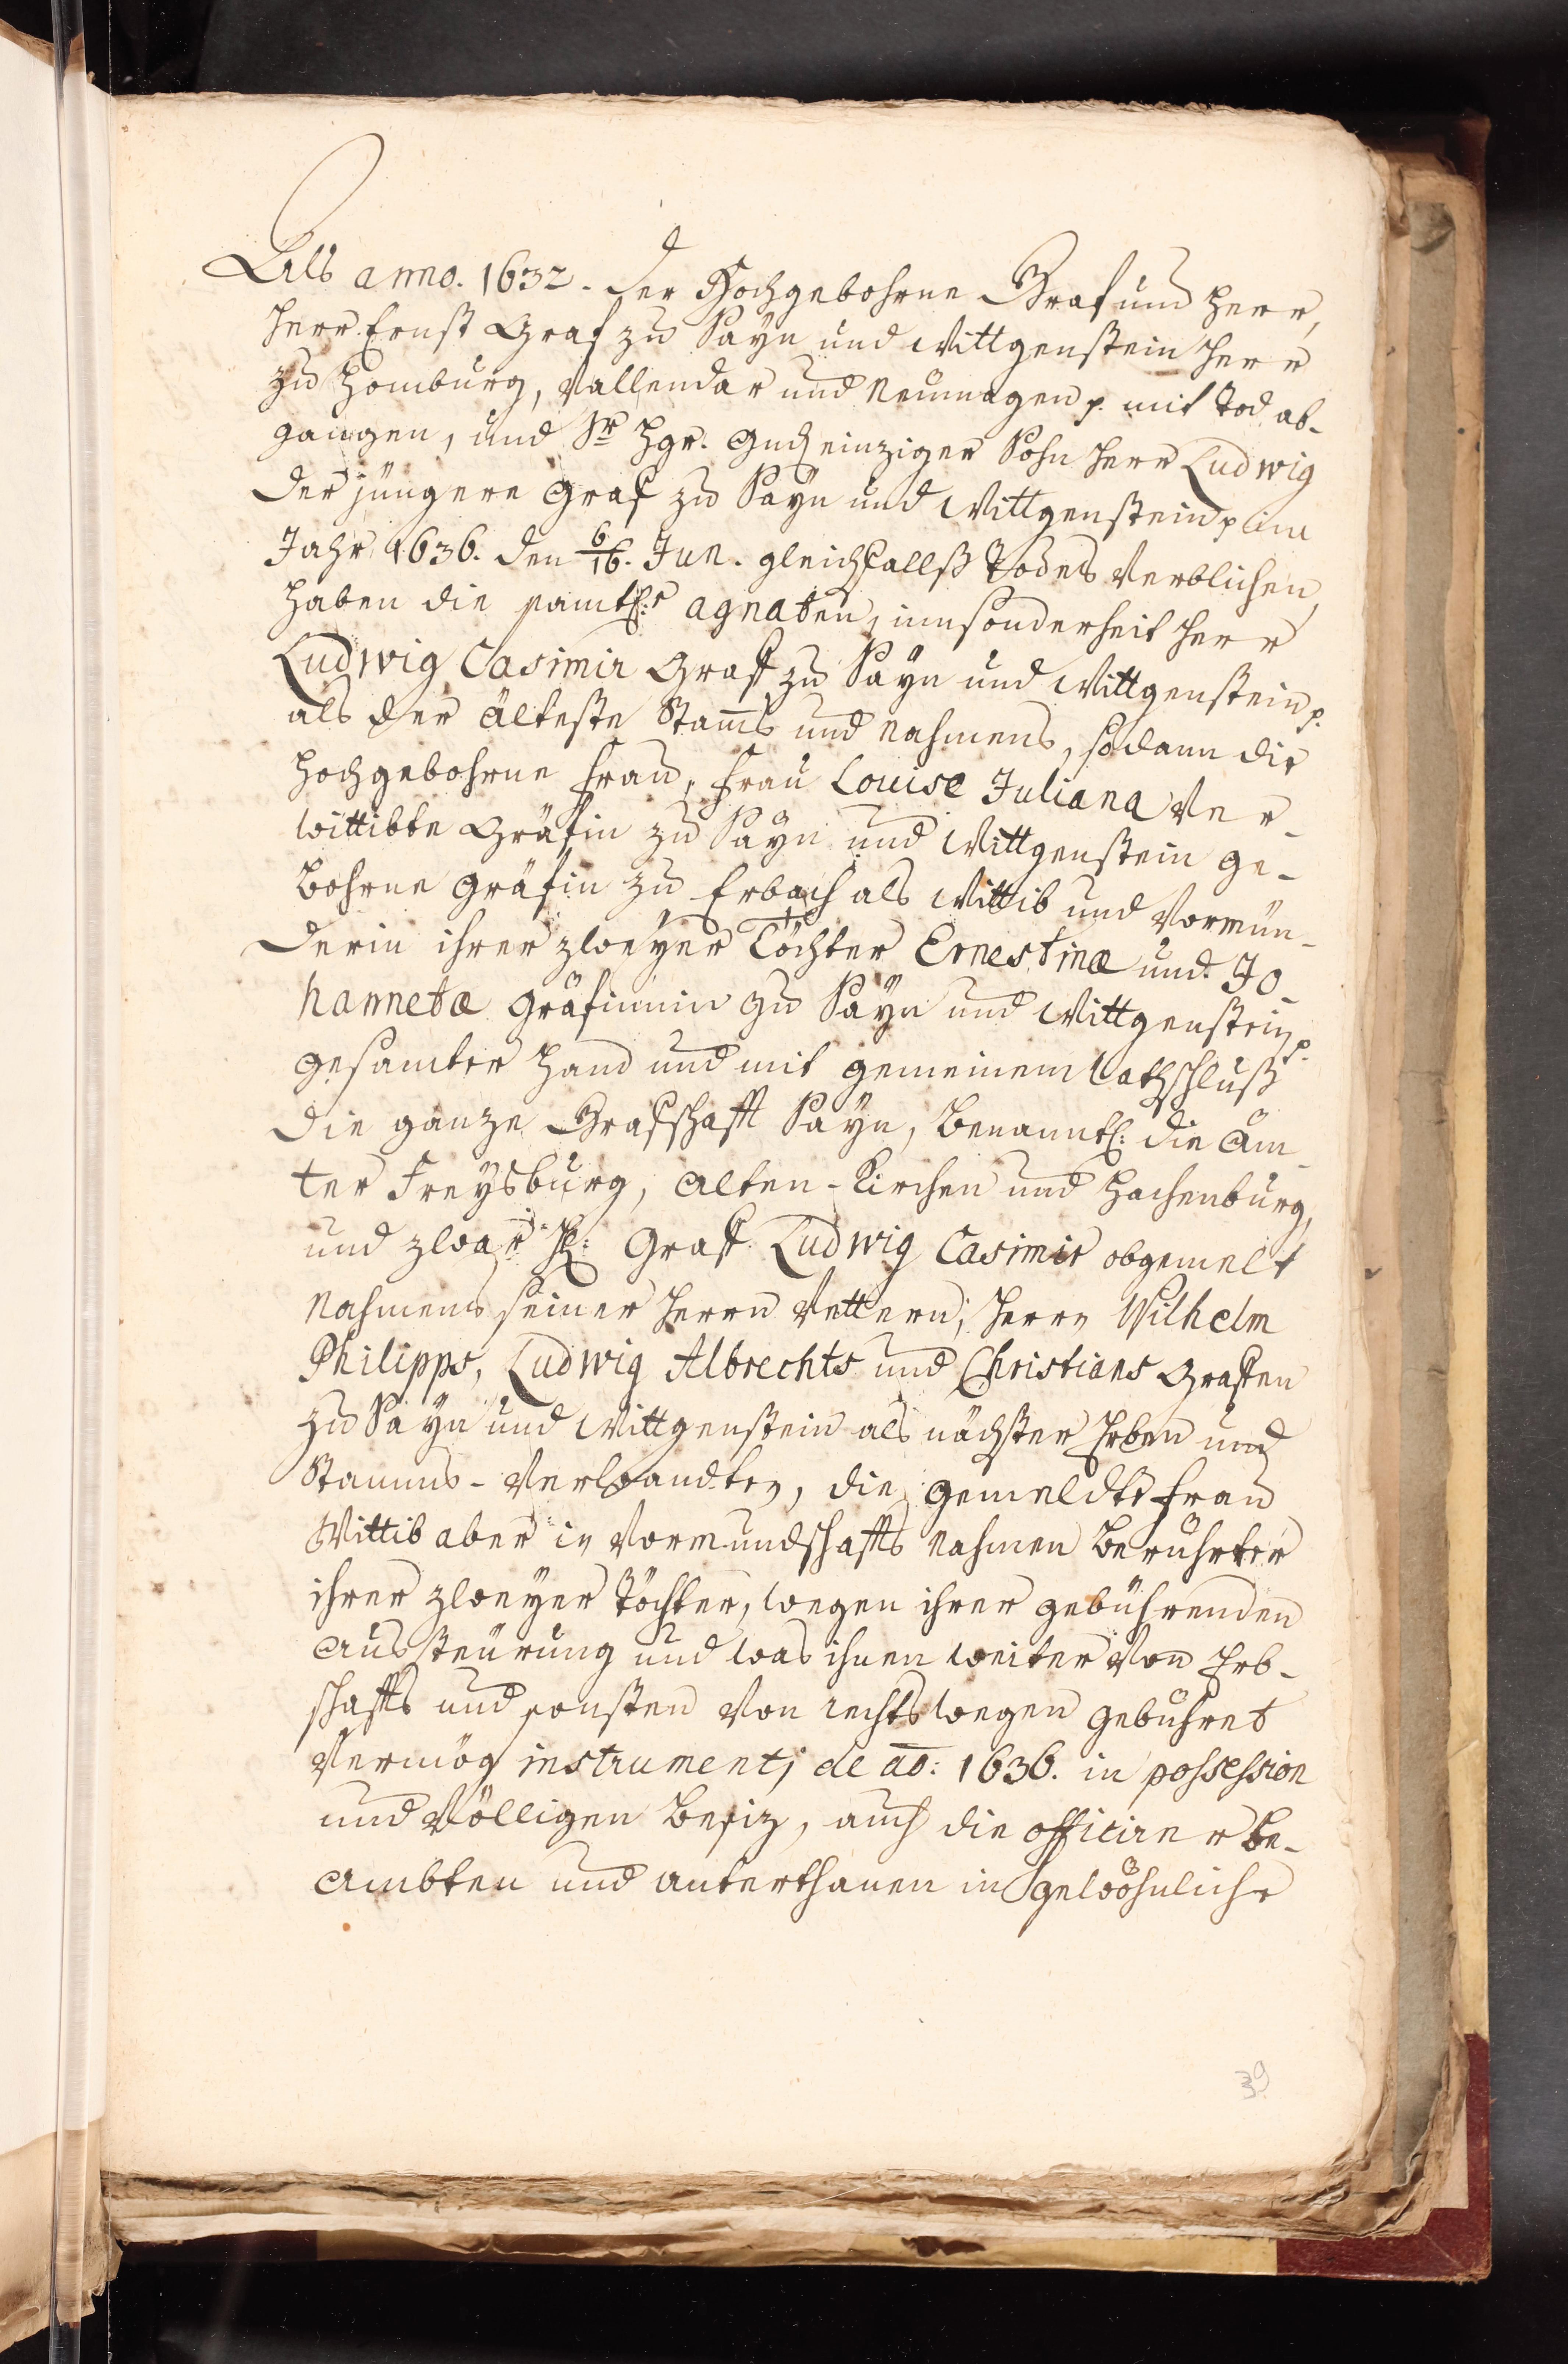 Als anno. 1632. der Hochgebohrne Graf und Herr,
Herr Ernst Graf zu Sayn und Wittgenstein Herr
zu Homburg, Vallendar und Neumagen p. mit Tod ab-
gangen, und Sr. hgr. Gnd. einziger Sohn Herr Ludwig
der jüngere Graf zu Sayn und Wittgenstein p im
Jahr 1636. den 6/16. Jun. gleichfallß Todes verblichen,
haben die samtl:e agnaten, insonderheit Herr
Ludwig Casimir Graff zu Sayn und Wittgenstein p.
als der älteste Stam̄s und Nahmens, sodann die
Hochgebohrne Frau, Frau Louise Juliana Ver-
wittibte Gräfin zu Sayn und Wittgenstein ge-
bohrne Gräfin zu Erbach als Wittib und Vormün-
derin ihrer zweyer Töchter Ernestinæ und Jo-
hannetæ Gräfinnin zu Sayn und Wittgenstein p.
gesamter Hand und mit gemeinem Rathschluß
die ganze Grafschafft Sayn, benanntl: die Äm-
ter Freysburg, Alten-Kirchen und Hachenburg,
und zwar H: Graff Ludwig Casimir obgemelt
Nahmens seiner Herrn Vettern, Herrn Wilhelm
Philipps, Ludwig Albrechts und Christians Graffen
zu Sayn und Wittgenstein als nächster Erben und
Stamms-Verwandten, die gemeldte Frau
Wittib aber in Vormundschaffts Nahmen berührter
ihrer zweyer Töchter, wegen ihrer gebührenden
Aussteürung und was ihnen weiter von Erb-
schaffts und sonsten von rechtswegen gebühret
Vermög instrumentj de ao: 1636. in possession
und Völligen besiz, auch die officirer Be-
ambten und unterthanen in gewöhnliche
39